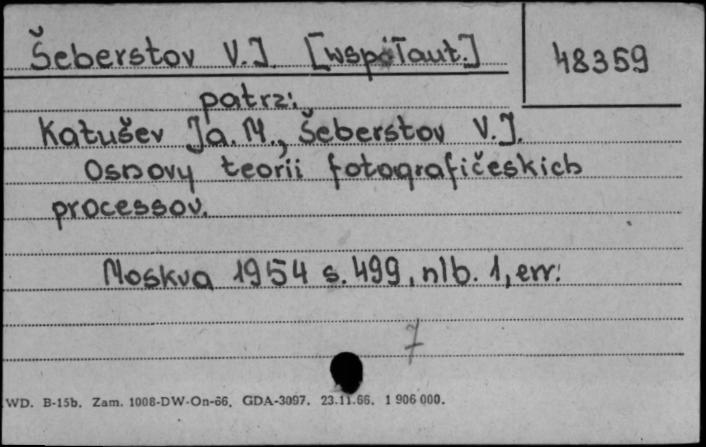 Šeberstov V.J. [współaut.]
48359
patrz:
Katušev Ja. M., Šeberstov V.J.
Osnovy teorii fotografičeskich
processov.
Moskva 1954 s. 499, nlb. 1, err.
7
WD. B-15b. Zam. 1008-DW-On-66. GDA-3097. 23.11.66. 1 906 000.